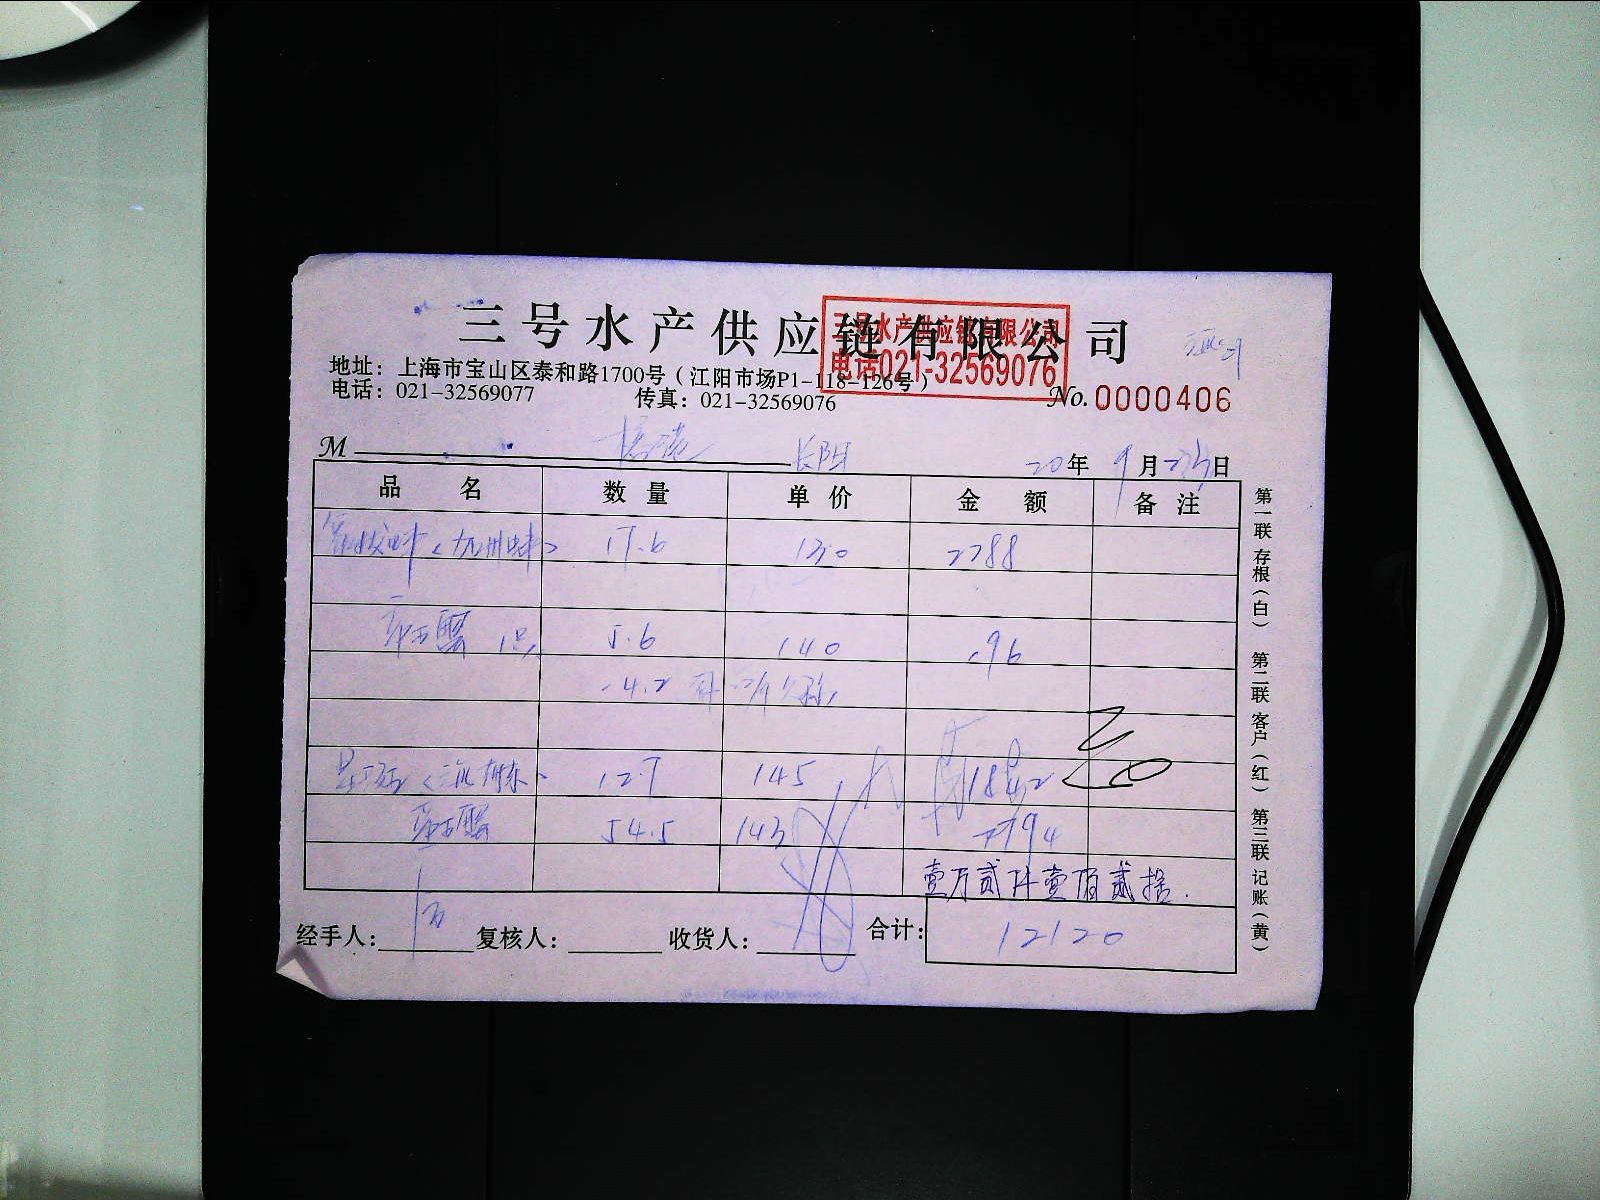 三号水产供应链有限公司
三号水产供应链有限公司
电话021-32569076
地址：上海市宝山区泰和路1700号（江阳市场P1-118-126号）
电话：021-32569077 传真：021-32569076
No.0000406
M 长阳 20年 9月 日
品 名 数 量 单 价 金 额 备 注
17.6 130 2288
帝王蟹 1只 5.6 140 196
-4.2
12.7 145 1842
帝王蟹 54.5 143 7794
壹万贰仟壹佰贰拾.
经手人： 复核人： 收货人： 合计： 12120
第一联 存根（白） 第二联 客户（红） 第三联 记账（黄）